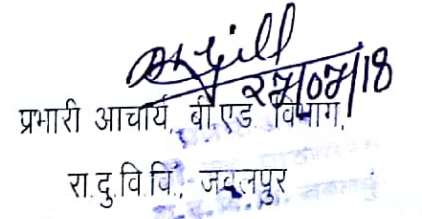 27/07/18
प्रभारी आचार्य, बी.एड. विभाग,
रा.दु.वि.वि., जबलपुर